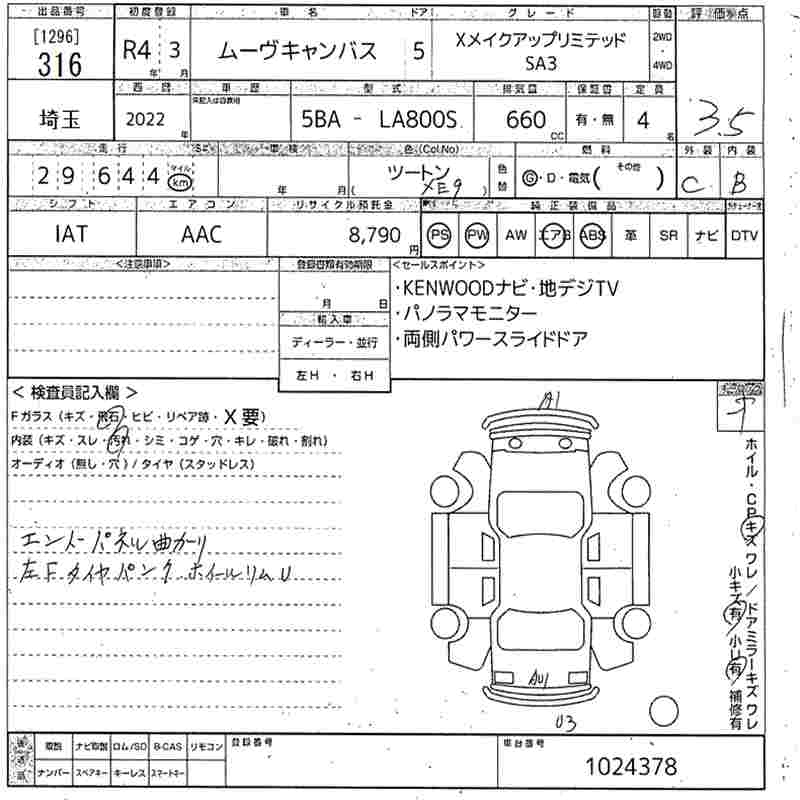 出品番号 初度登録 車名 ドア グレード 駆動 評価点
[1296] 316 R4 年 3 月 ムーヴキャンバス 5 Xメイクアップリミテッド SA3 2WD ・ 4WD
西暦 車歴 型式 排気量 保証書 定員
未記入は自家用
埼玉 2022 年 5BA - LA800S 660 CC 有・無 4 名 3.5
走行 車検 色(Col.No) 燃料 外装 内装
29644 マイル km 年 月 ( ツートン XE9 ) 色替 G・D・電気( その他 ) C B
シフト エアコン リサイクル預託金 純正装備品
IAT AAC 8,790 円 PS PW AW エアB ABS 革 SR ナビ DTV
<注意事項> 登録書類有効期限 <セールスポイント>
月 日 ・KENWOODナビ・地デジTV
輸入車 ・パノラマモニター
ディーラー・並行 ・両側パワースライドドア
左H ・ 右H
< 検査員記入欄 >
Fガラス(キズ・飛石・ヒビ・リペア跡・X要)
内装(キズ・スレ・汚れ・シミ・コゲ・穴・キレ・破れ・割れ)
オーディオ(無し・穴)/タイヤ(スタッドレス)
エンドパネル曲がり
左Fタイヤパンク ホイールリムU
A1
AU1
U3
ホイル・CPキズ ワレ/ドアミラーキズ ワレ
小キズ有/小U有 補修有
後送品 車歴 ナビ取説 ロム/SD B-CAS リモコン 登録番号 車台番号
ナンバー スペアキー キーレス スマートキー 1024378